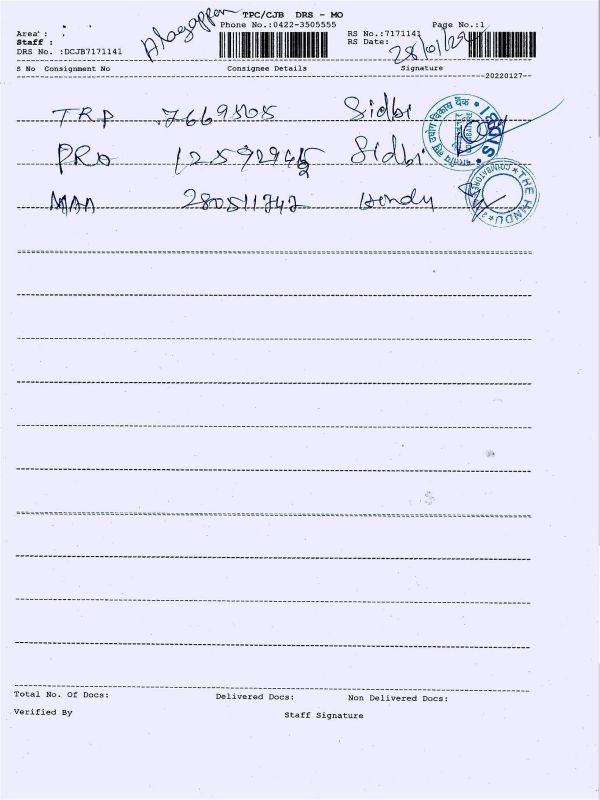 Alagappan
TPC/CJB DRS - MO
Phone No.:0422-3505555
Page No.:1
Area :
Staff :
DRS No. :DCJB7171141
RS No.:7171141
RS Date:
S No Consignment No Consignee Details Signature
20220127
TRP 7669505 Sidbi
PRO Sidbi
MAA 280511747 Hendu
भारतीय लघु उद्योग विकास बैंक SIDBI
THE HINDU COIMBATORE
Total No. Of Docs: Delivered Docs: Non Delivered Docs:
Verified By Staff Signature